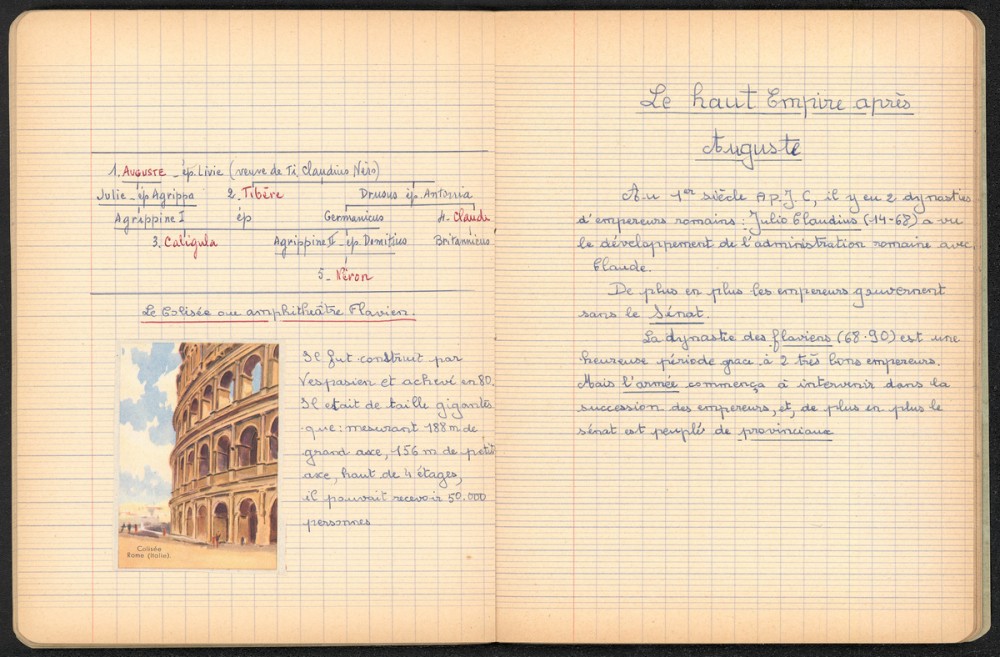 1. AUGUSTE _ ép. Livie (veuve de Ti. Claudius Néro)
Julie _ ép Agrippa 2. Tibère Drusus ép. Antonia
Agrippine I ép Germanicus 4. Claude
3. Caligula Agrippine II _ ép. Domitius Britannicus
5_ Néron
Le Colisée ou amphithéâtre Flavien.
Il fut construit par
Vespasien et achevé en 80.
Il était de taille gigantes
que : mesurant 188 m de
grand axe, 156 m de petit
axe, haut de 4 étages,
il pouvait recevoir 50.000
personnes
Colisée
Rome (Italie).
Le haut Empire après
Auguste
Au 1er siècle Ap. J. C, il y eu 2 dynasties
d'empereurs romains : Julio Claudius (14-68) a vu
le développement de l'administration romaine avec
Claude.
De plus en plus les empereurs gouvernent
sans le Sénat.
La dynastie des flaviens (68-90) est une
heureuse période grace à 2 très bons empereurs.
Mais l'armée commença à intervenir dans la
succession des empereurs, et, de plus en plus le
sénat est peuplé de provinciaux